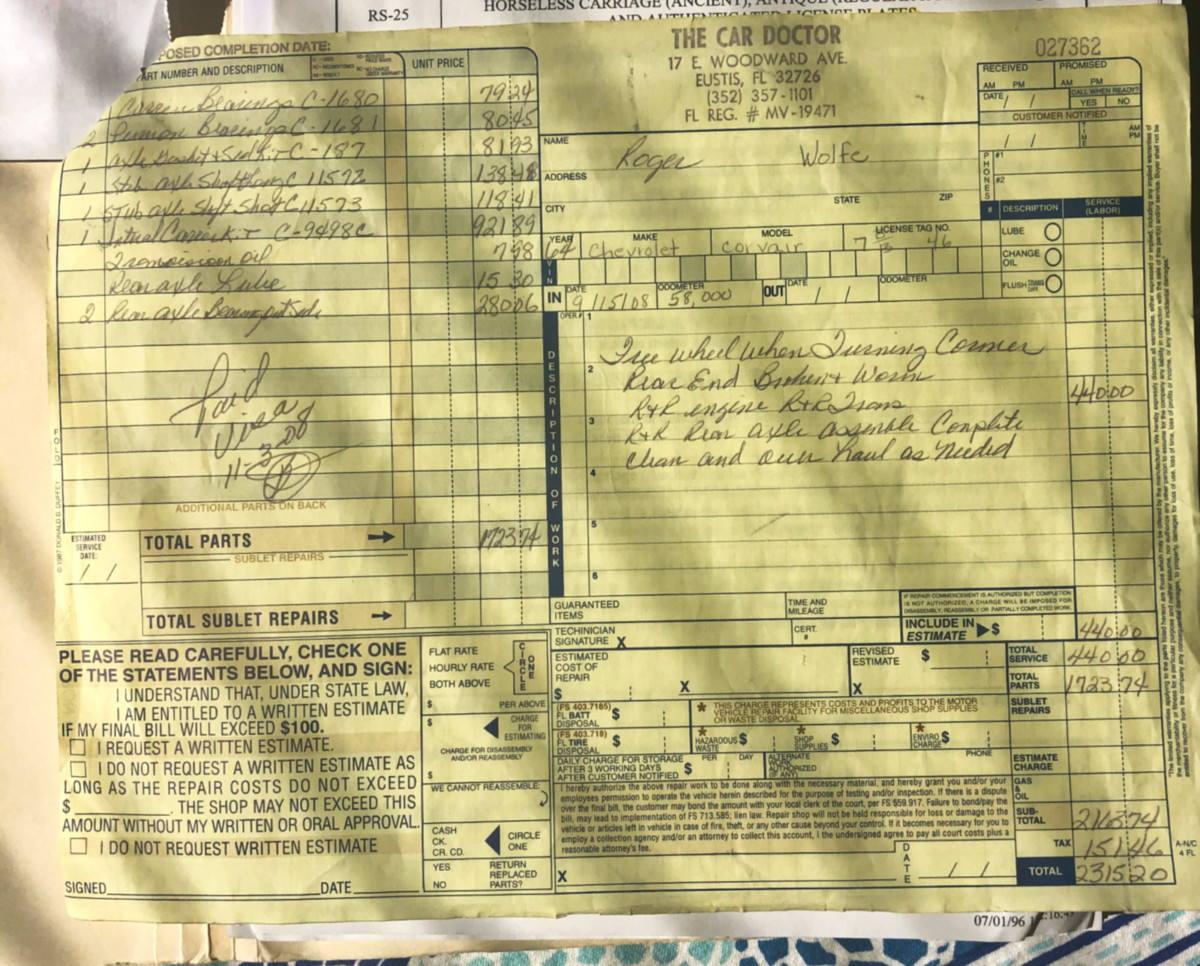 RS-25
HORSELESS CARRIAGE (ANCIENT), ANTIQUE
AND AUTHENTICATED LICENSE PLATES
POSED COMPLETION DATE:
ART NUMBER AND DESCRIPTION
UNIT PRICE
Bearings C-1680 79 24
2 Pinion Bearings C-1681 80 45
1 Axle Gasket & Seal Kit C-187 81 93
1 Stub axle Shaft C 11572 138 48
1 Stub axle Shft Short C 11573 118 41
1 C-9498C 921 89
Transmission Oil 7 98
Rear axle Lube 15 30
2 Rear axle Bearing 280 06
Paid
Visa
11-3-08
ADDITIONAL PARTS ON BACK
TOTAL PARTS 1723 74
SUBLET REPAIRS
TOTAL SUBLET REPAIRS
ESTIMATED
SERVICE
DATE:
/ /
© 1987 DONALD B. DUFFEY
THE CAR DOCTOR
17 E. WOODWARD AVE.
EUSTIS, FL 32726
(352) 357-1101
FL REG. # MV-19471
027362
RECEIVED PROMISED
AM PM AM PM
DATE / / CALL WHEN READY?
YES NO
CUSTOMER NOTIFIED
/ / TIME AM PM
PHONES #1
#2
NAME Roger Wolfe
ADDRESS
CITY STATE ZIP
YEAR MAKE MODEL LICENSE TAG NO.
64 Chevrolet Corvair
VIN
IN DATE 9/15/08 ODOMETER 58,000 OUT DATE / / ODOMETER
# DESCRIPTION SERVICE (LABOR)
LUBE
CHANGE OIL
FLUSH
OPER# 1
DESCRIPTION OF WORK
Free Wheel When Turning Corner
2
Rear End Broken & Worn 440 00
R&R engine R&R Trans
3
R&R Rear axle assemble Complete
Clean and over haul as Needed
4
5
6
GUARANTEED ITEMS
TIME AND MILEAGE
IF REPAIR COMMENCEMENT IS AUTHORIZED BUT COMPLETION
IS NOT AUTHORIZED, A CHARGE WILL BE IMPOSED FOR
DISASSEMBLY, REASSEMBLY OR PARTIALLY COMPLETED WORK.
INCLUDE IN ESTIMATE $ 440 00
TECHNICIAN SIGNATURE X
CERT. #
ESTIMATED COST OF REPAIR $ X
REVISED ESTIMATE $ X
TOTAL SERVICE 440 00
TOTAL PARTS 1723 74
SUBLET REPAIRS
ESTIMATE CHARGE
GAS & OIL
SUB-TOTAL 2163 74
TAX 151 46
TOTAL 2315 20
A-N/C
4 FL
(FS 403.7185)
FL BATT DISPOSAL $
* THIS CHARGE REPRESENTS COSTS AND PROFITS TO THE MOTOR
VEHICLE REPAIR FACILITY FOR MISCELLANEOUS SHOP SUPPLIES
OR WASTE DISPOSAL
(FS 403.718)
FL TIRE DISPOSAL $
* HAZARDOUS WASTE $ * SHOP SUPPLIES $ * ENVIRO CHARGE $
DAILY CHARGE FOR STORAGE
AFTER 3 WORKING DAYS
AFTER CUSTOMER NOTIFIED $ PER DAY
PHONE
I hereby authorize the above repair work to be done along with the necessary material, and hereby grant you and/or your
employees permission to operate the vehicle herein described for the purpose of testing and/or inspection. If there is a dispute
over the final bill, the customer may bond the amount with your local clerk of the court, per FS 559.917. Failure to bond/pay the
bill, may lead to implementation of FS 713.585; lien law. Repair shop will not be held responsible for loss or damage to the
vehicle or articles left in vehicle in case of fire, theft, or any other cause beyond your control. If it becomes necessary for you to
employ a collection agency and/or an attorney to collect this account, I the undersigned agree to pay all court costs plus a
reasonable attorney's fee.
X DATE / /
PLEASE READ CAREFULLY, CHECK ONE
OF THE STATEMENTS BELOW, AND SIGN:
I UNDERSTAND THAT, UNDER STATE LAW,
I AM ENTITLED TO A WRITTEN ESTIMATE
IF MY FINAL BILL WILL EXCEED $100.
I REQUEST A WRITTEN ESTIMATE.
I DO NOT REQUEST A WRITTEN ESTIMATE AS
LONG AS THE REPAIR COSTS DO NOT EXCEED
$ . THE SHOP MAY NOT EXCEED THIS
AMOUNT WITHOUT MY WRITTEN OR ORAL APPROVAL.
I DO NOT REQUEST WRITTEN ESTIMATE
SIGNED DATE
FLAT RATE
HOURLY RATE
BOTH ABOVE
CIRCLE ONE
$ PER ABOVE
$ CHARGE FOR ESTIMATING
CHARGE FOR DISASSEMBLY
AND/OR REASSEMBLY
$
WE CANNOT REASSEMBLE:
CASH
CK.
CR. CD.
CIRCLE ONE
YES
NO
RETURN REPLACED PARTS?
07/01/96